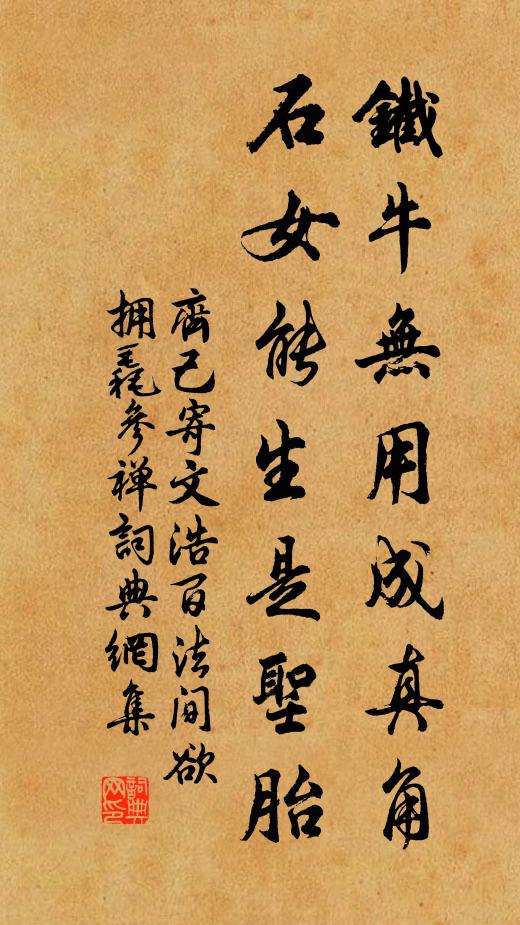 鐵牛無用成真角
石女能生是聖胎
齊己寄文浩百法間欲
拥毳參禪詞典網集
詞典
网印